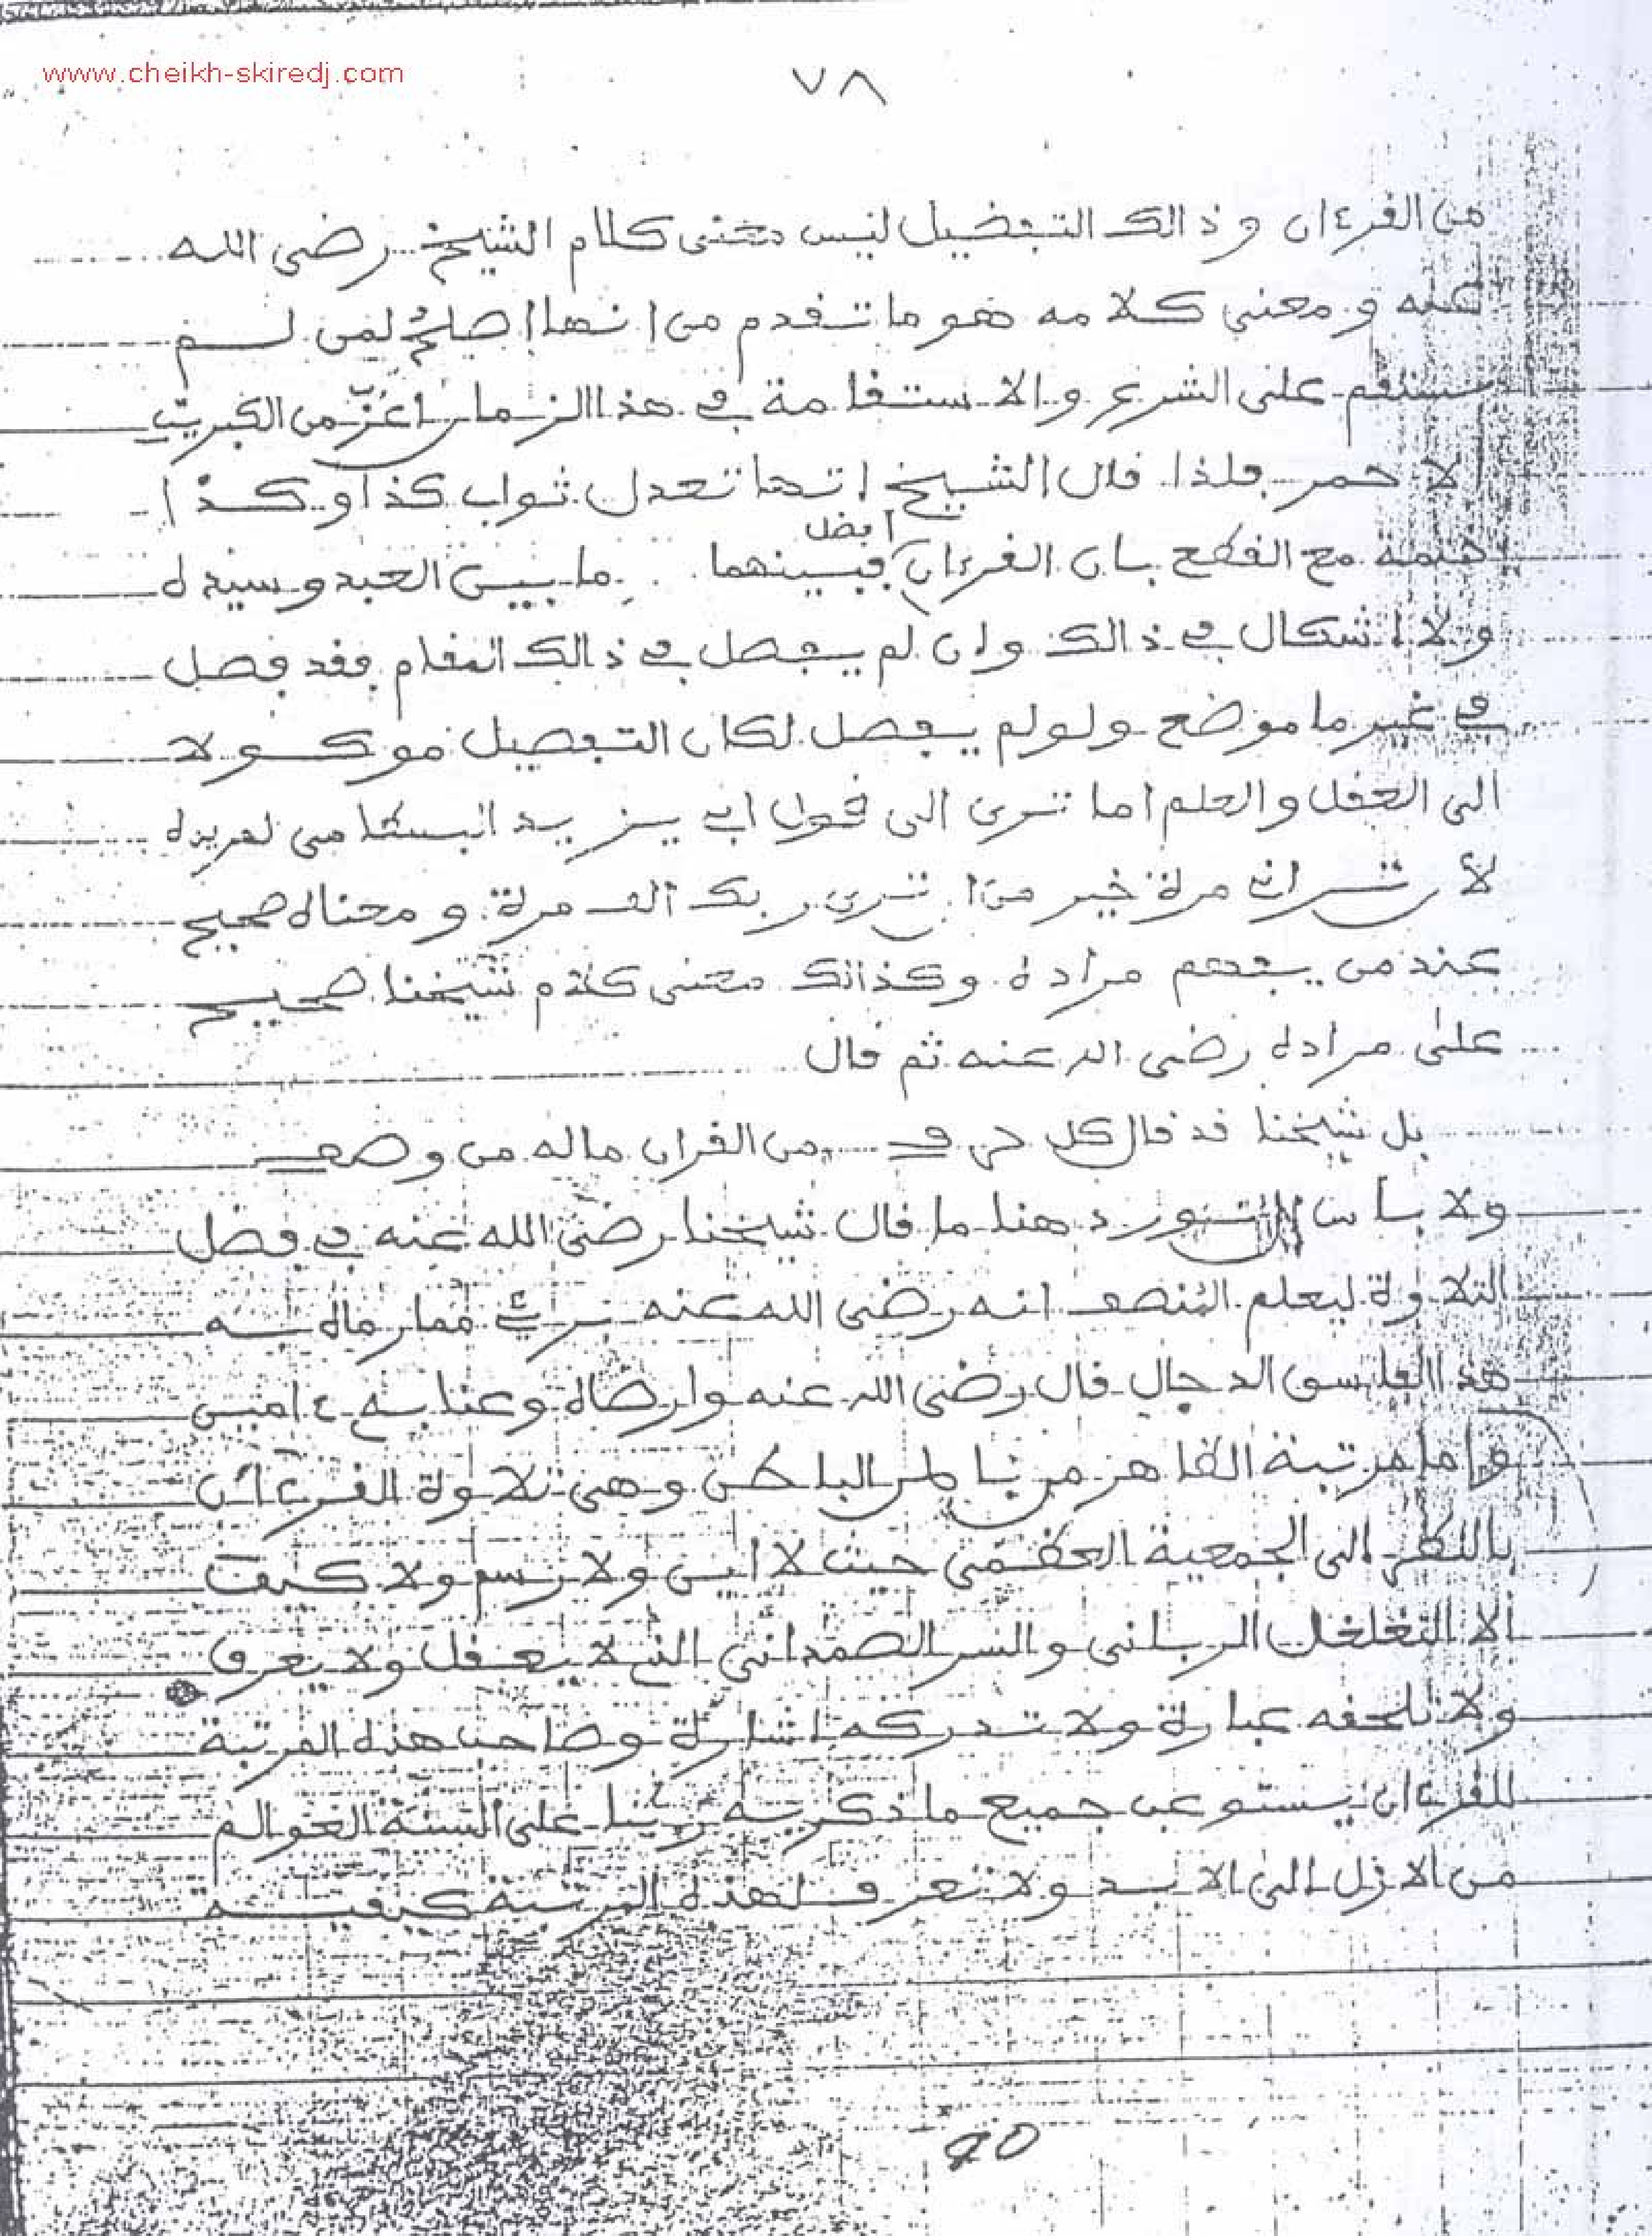 www.cheikh-skiredj.com
٧٨
من القرءان وذالك التفضيل ليس معنى كلام الشيخ رضى الله
عنه و معنى كلامه هو ما تقدم من انها اصلح لمن لم
يستقم على الشرع والاستقامة في هذا الزمان اعزّ من الكبريت
الاحمر فلذا قال الشيخ انها تعدل ثواب كذا وكذا
ختمة مع القطع بان القرءان افضل فبينهما ما بين العبد وسيده
ولا اشكال في ذالك وان لم يفصل في ذالك المقام فقد فصل
في غير ما موضع ولو لم يفصل لكان التفصيل موكولا
الى العقل والعلم اما ترى الى قول ابي يزيد البسطامى لمريده
لأن ترانى مرة خير من ان ترى ربك الف مرة و معناه صحيح
عند من يفهم مراده وكذالك معنى كلام شيخنا صحيح
على مراده رضى الله عنه ثم قال
بل شيخنا قد قال كل حرف من القران ماله من وصف
ولا باس ان نورد هنا ما قال شيخنا رضى الله عنه في فضل
التلاوة ليعلم المنصف انه رضى الله عنه برئ مما رماه به
هذا الفاسق الدجال قال رضى الله عنه وارضاه وعنا به ءامين
واما مرتبة الظاهر من باطن الباطن وهى تلاوة القرءان
بالنظر الى الجمعية العظمى حيث لا اين ولا رسم ولا كيف
الا التغلغل الربانى والسر الصمدانى الذي لا يعقل ولا يعرف
ولا تلحقه عبارة ولا تدركه اشارة وصاحب هذه المرتبة
للقرءان يستوعب جميع ما ذكر به ربنا على السنة العوالم
من الازل الى الابد ولا تعرف لهذه المرتبة كيفية